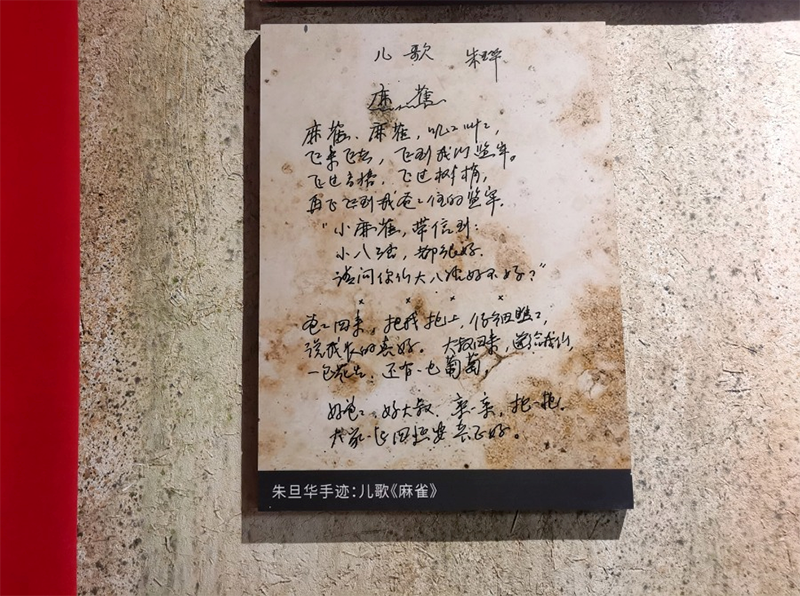 儿歌 朱丹华
麻雀
麻雀、麻雀，叽叽叫叫，
飞来飞去，飞到我们监牢。
飞过高墙，飞过树梢，
再飞飞到我爸爸住的监牢。
“小麻雀，带信到：
小八路，都很好。
请问你们大八路好不好？”
× × × ×
爸爸回来，把我抱上，仔细瞧瞧，
说我长的真好。大叔回来，送给我们，
一包花生，还有一包葡萄。
好爸爸、好大叔，亲一亲，抱一抱。
大家一起回延安真正好。
朱旦华手迹：儿歌《麻雀》